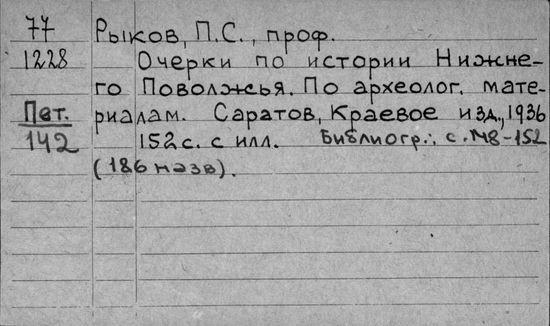 77 Рыков, П.С., проф.
1228 Очерки по истории Нижне-
го Поволжья. По археолог. мате-
Пет. риалам. Саратов, Краевое изд., 1936
142 152 с. с илл. Библиогр.: с. 148-152
(186 назв).